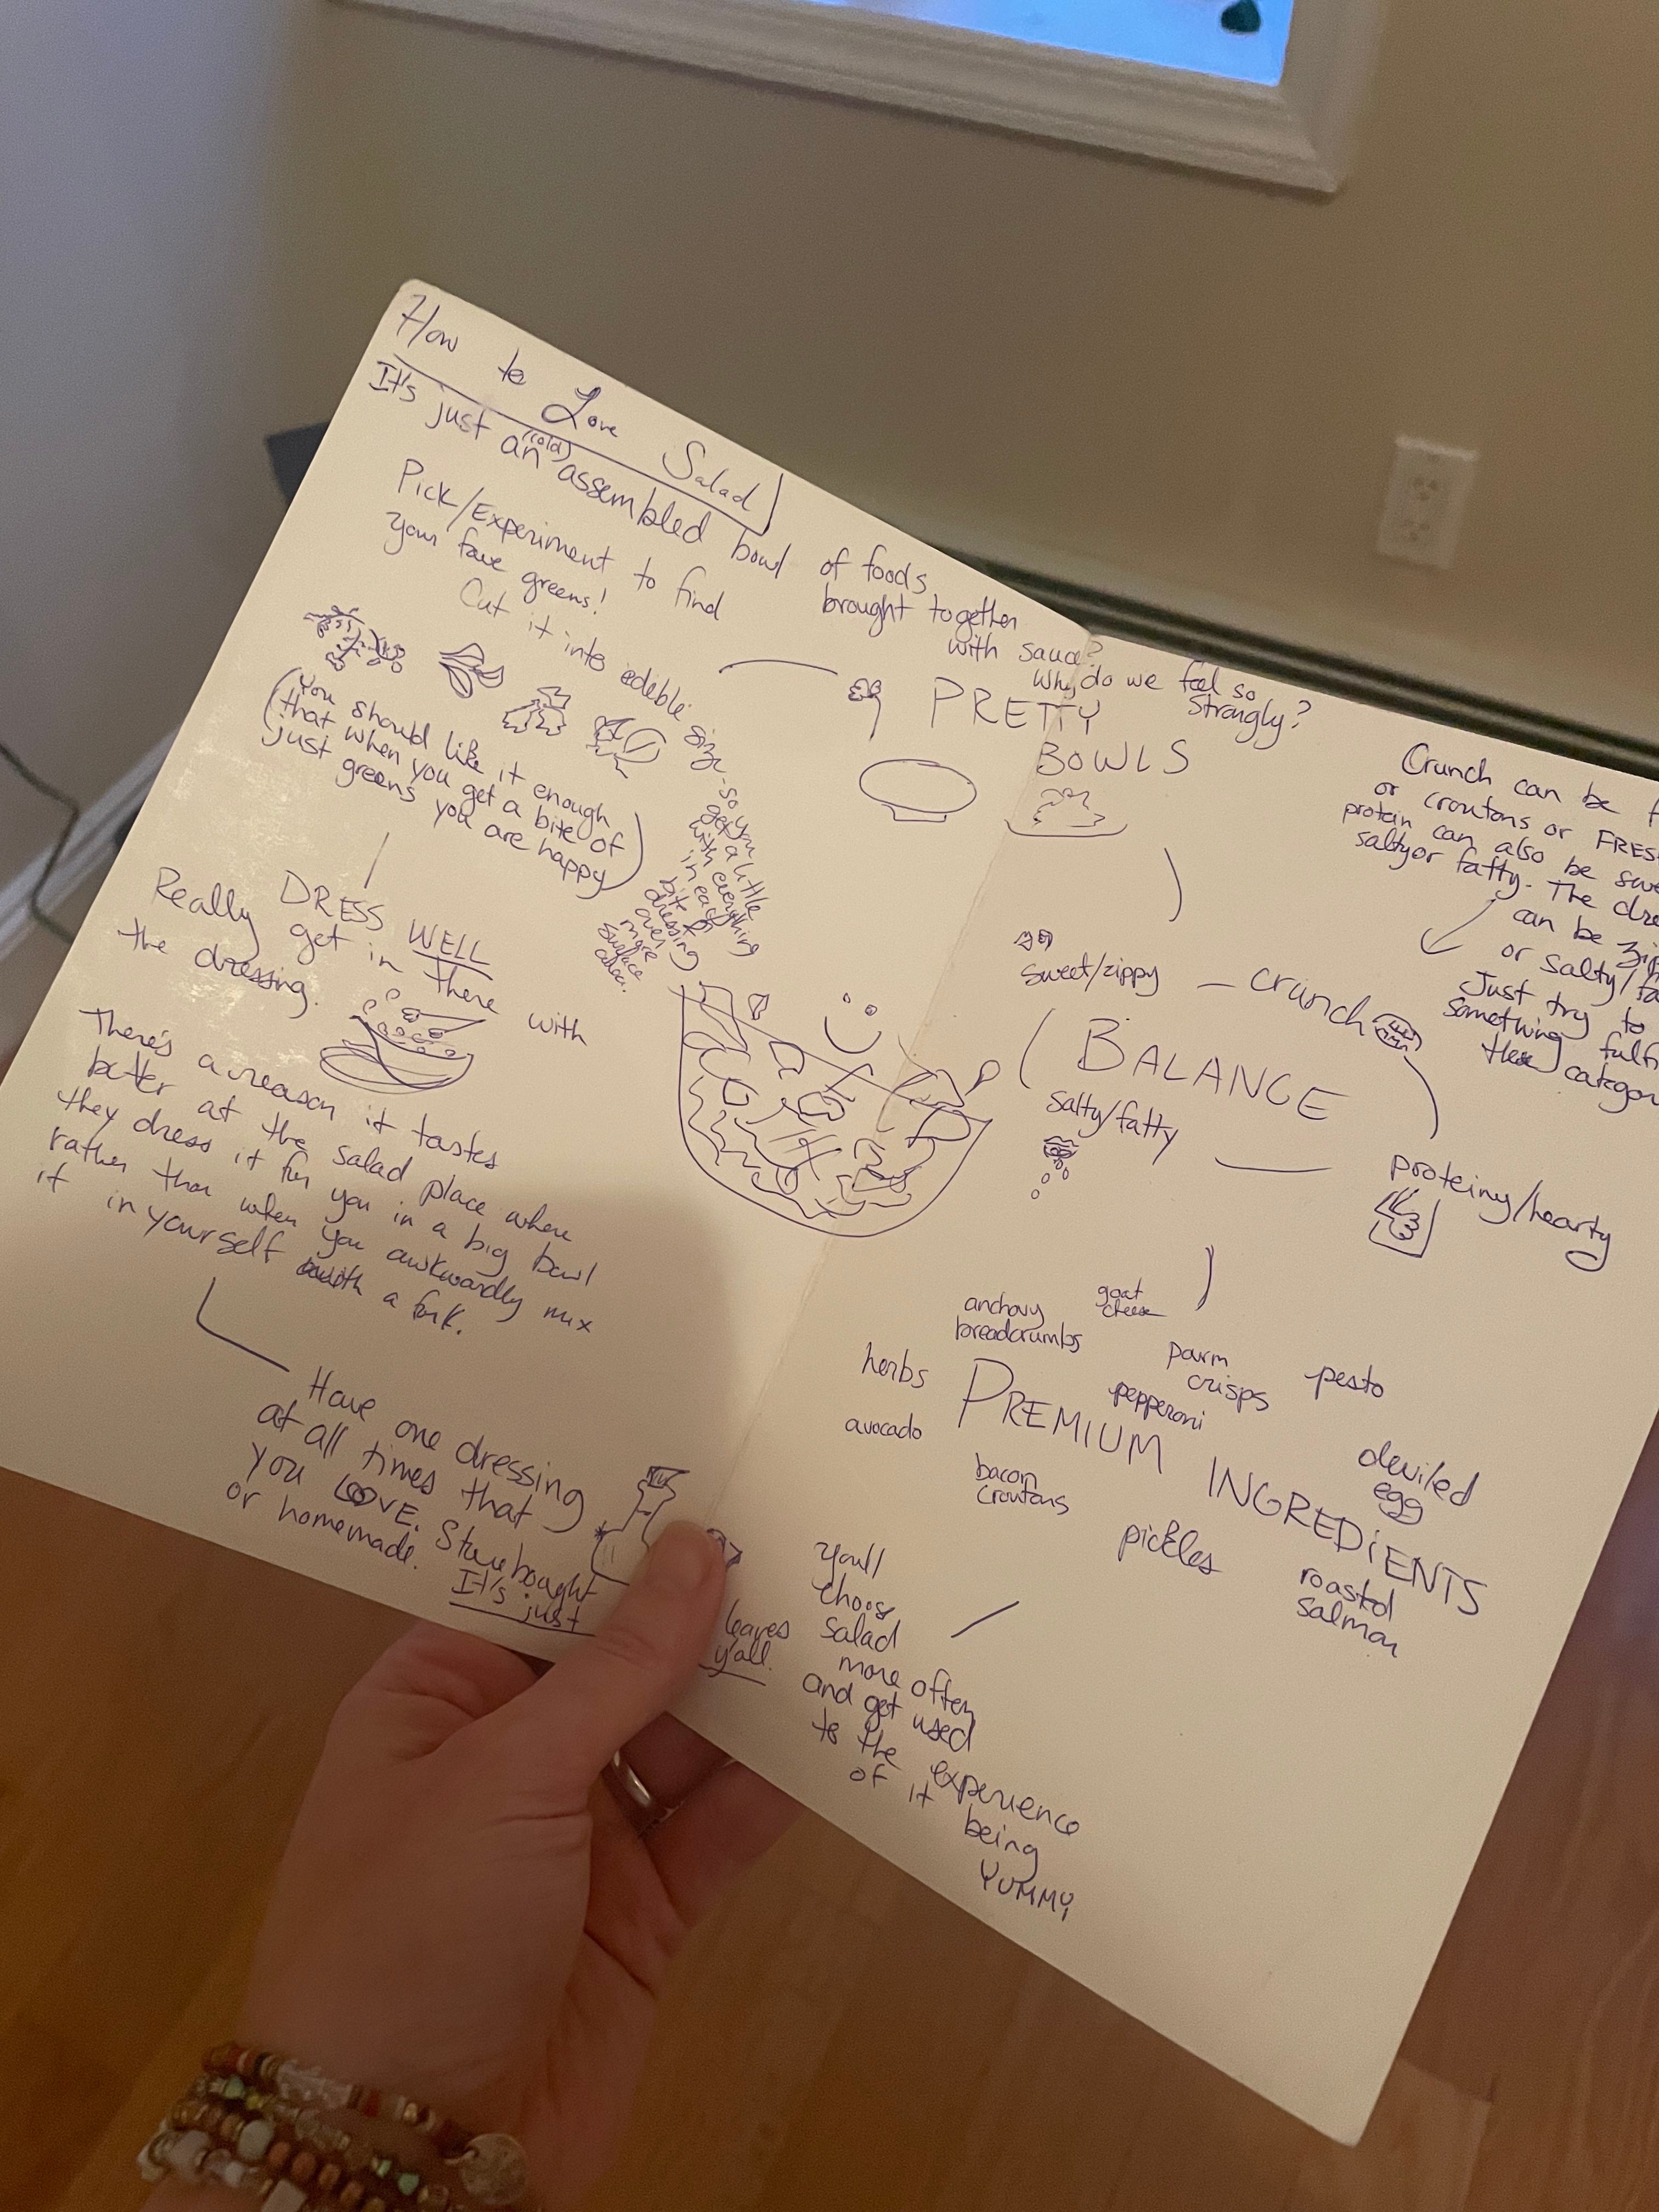 How to Love Salad
It's just an (cold) assembled bowl of foods
brought together
with sauce?
Why do we feel so
strongly?
Pick/Experiment to find
your fave greens!
Cut it into edeble size so you
get a little
with everything
in each
bite
dressing
over
more
surface
area.
(You should like it enough
that when you get a bite of
just greens you are happy)
DRESS WELL
Really get in there with
the dressing.
There's a reason it tastes
better at the salad place when
they dress it for you in a big bowl
rather than when you awkwardly mix
it in yourself with a fork.
Have one dressing
at all times that
you LOOVE. Store bought
or homemade.
It's just
leaves
y'all.
PRETTY
BOWLS
sweet/zippy
crunch
BALANCE
salty/fatty
proteiny/hearty
Crunch can be
or croutons or
protein can also be
salty or fatty. The
can be
or salty/
Just try to
something
anchovy
breadcrumbs
goat
cheese
herbs
parm
crisps
pesto
pepperoni
avocado
PREMIUM INGREDIENTS
bacon
croutons
deviled
egg
pickles
roasted
salmon
You'll
choose
salad
more often
and get used
to the experience
of it being
YUMMY